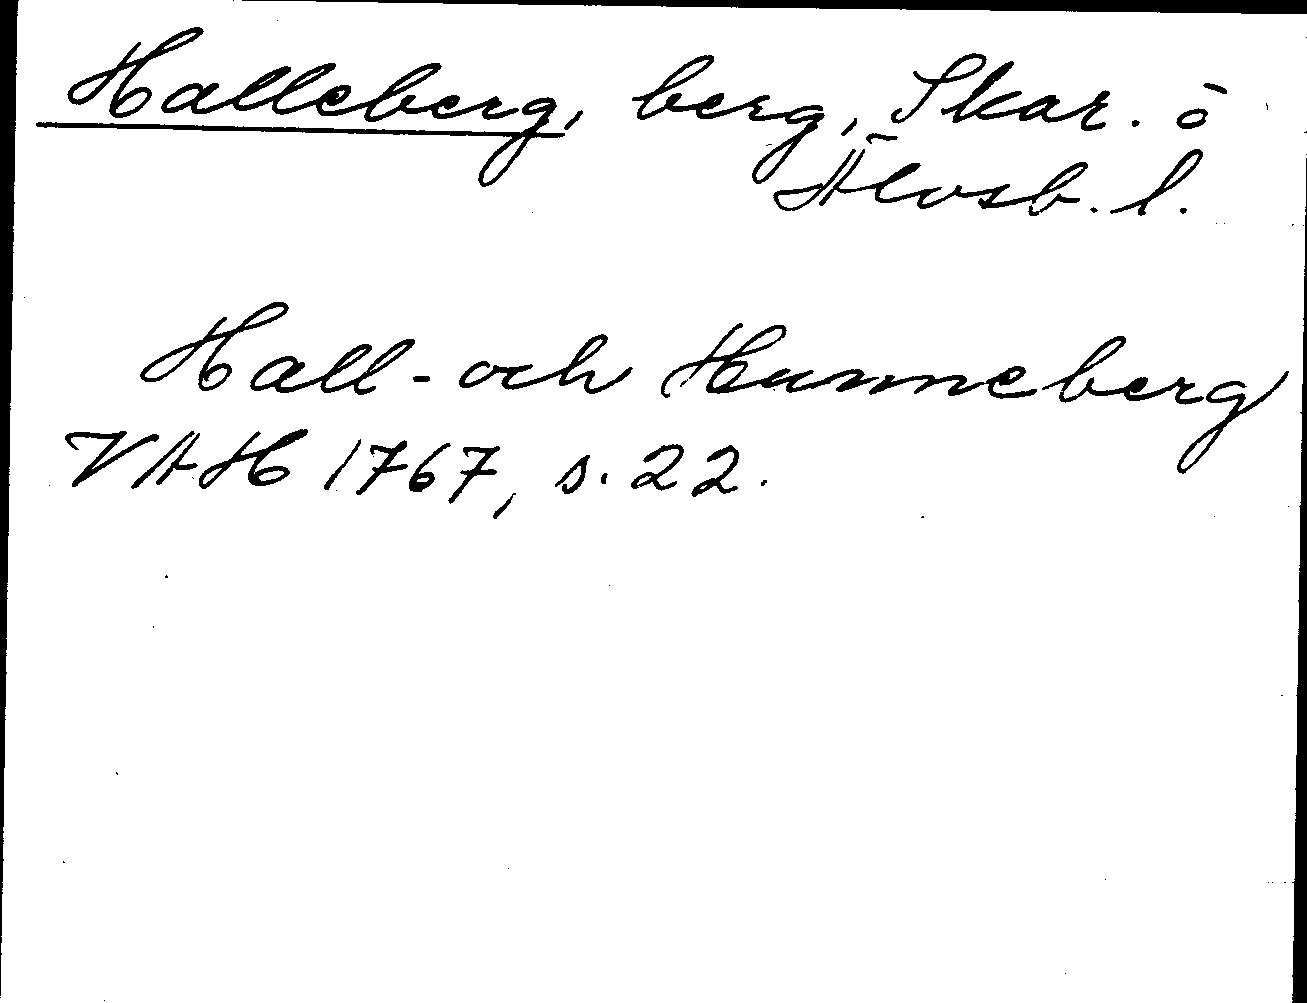 Halleberg, berg, Skar. ō
Älvsb. l.
Hall- och Hunneberg
VAH 1767, s. 22.